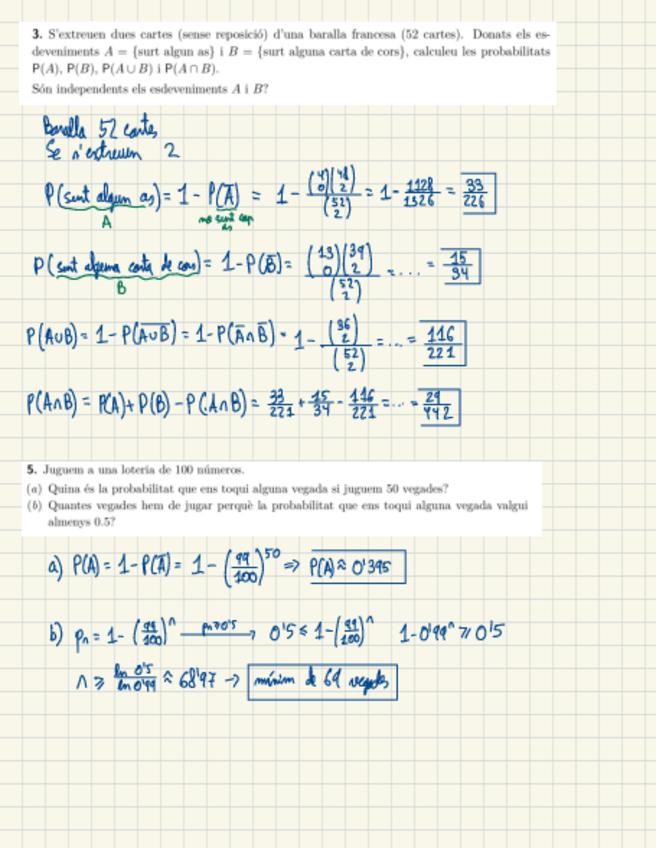 3. S'extreuen dues cartes (sense reposició) d'una baralla francesa (52 cartes). Donats els es-
deveniments A = {surt algun as} i B = {surt alguna carta de cors}, calculeu les probabilitats
P(A), P(B), P(A ∪ B) i P(A ∩ B).
Són independents els esdeveniments A i B?
Baralla 52 cartes
Se n'extreuen 2
P(surt algun as) = 1 - P(Ā) = 1 - (4 0)(48 2)/(52 2) = 1 - 1128/1326 = 33/226
A no surt cap as
P(surt alguna carta de cors) = 1 - P(B̄) = (13 0)(39 2)/(52 2) = .... = 15/34
B
P(A∪B) = 1 - P(A̅∪̅B̅) = 1 - P(Ā∩B̄) = 1 - (36 2)/(52 2) = ... = 116/221
P(A∩B) = P(A) + P(B) - P(A∩B) = 33/221 + 15/34 - 116/221 = ... = 29/442
5. Juguem a una loteria de 100 números.
(a) Quina és la probabilitat que ens toqui alguna vegada si juguem 50 vegades?
(b) Quantes vegades hem de jugar perquè la probabilitat que ens toqui alguna vegada valgui
almenys 0.5?
a) P(A) = 1 - P(Ā) = 1 - (99/100)^50 ⇒ P(A) ≈ 0'395
b) pn = 1 - (99/100)^n → pn≥0'5 0'5 ≤ 1 - (99/100)^n 1 - 0'99^n ≥ 0'5
n ≥ ln 0'5/ln 0'99 ≈ 68'97 → mínim de 69 vegades